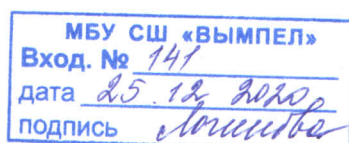 МБУ СШ «ВЫМПЕЛ»
Вход. № 141
дата 25.12.2020
подпись